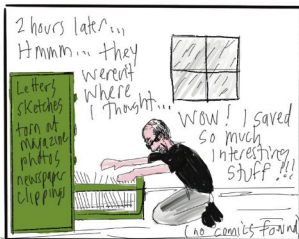 2 hours later...
Hmmm... they
weren't
where
I thought...
Letters
sketches
torn at
magazine
photos
newspaper
clippings
Wow! I saved
so much
interesting
stuff!!!
(no comics found